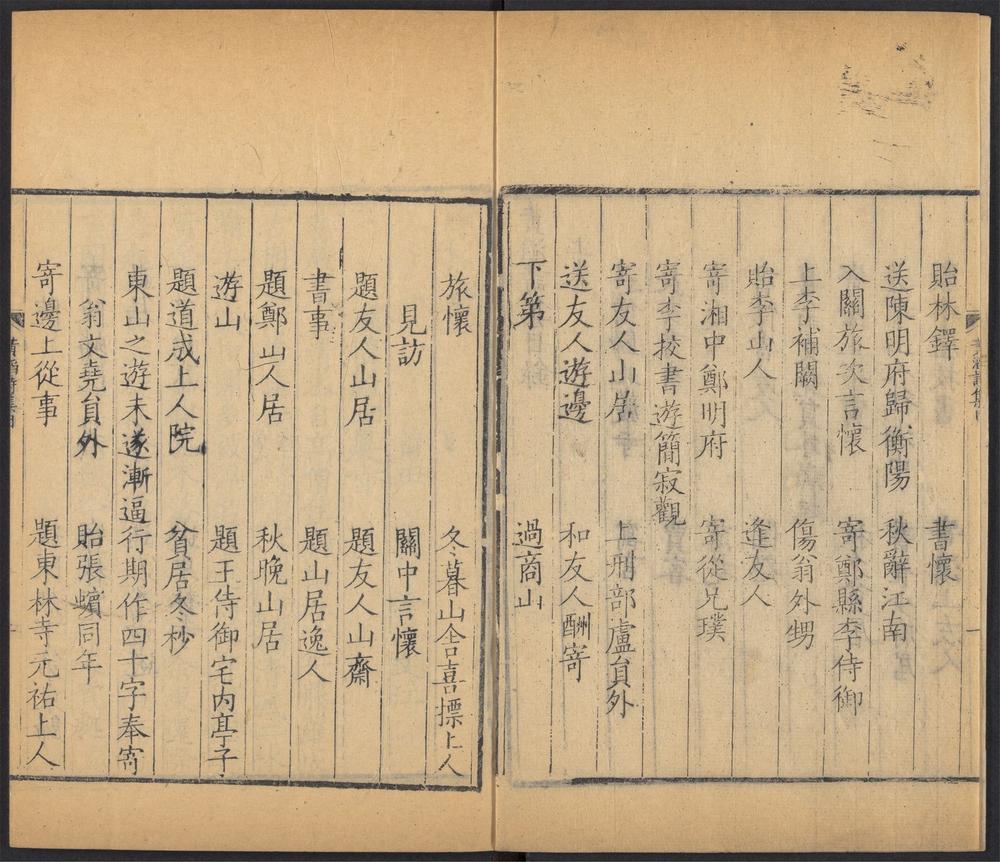 貽林鐸 書懷
送陳明府歸衡陽 秋辭江南
入關旅次言懷 寄鄭縣李侍御
上李補闕 傷翁外甥
貽李山人 逢友人
寄湘中鄭明府 寄從兄璞
寄李挍書遊簡寂觀
寄友人山居 上刑部盧貟外
送友人遊邊 和友人酬寄
下第 過商山
旅懷 冬暮山舍喜摽上人
見訪 關中言懷
題友人山居 題友人山齋
書事 題山居逸人
題鄭山人居 秋晚山居
遊山 題王侍御宅内亭子
題道成上人院 貧居冬杪
東山之遊未遂漸逼行期作四十字奉寄
翁文堯貟外 貽張蠙同年
寄邊上從事 題東林寺元祐上人